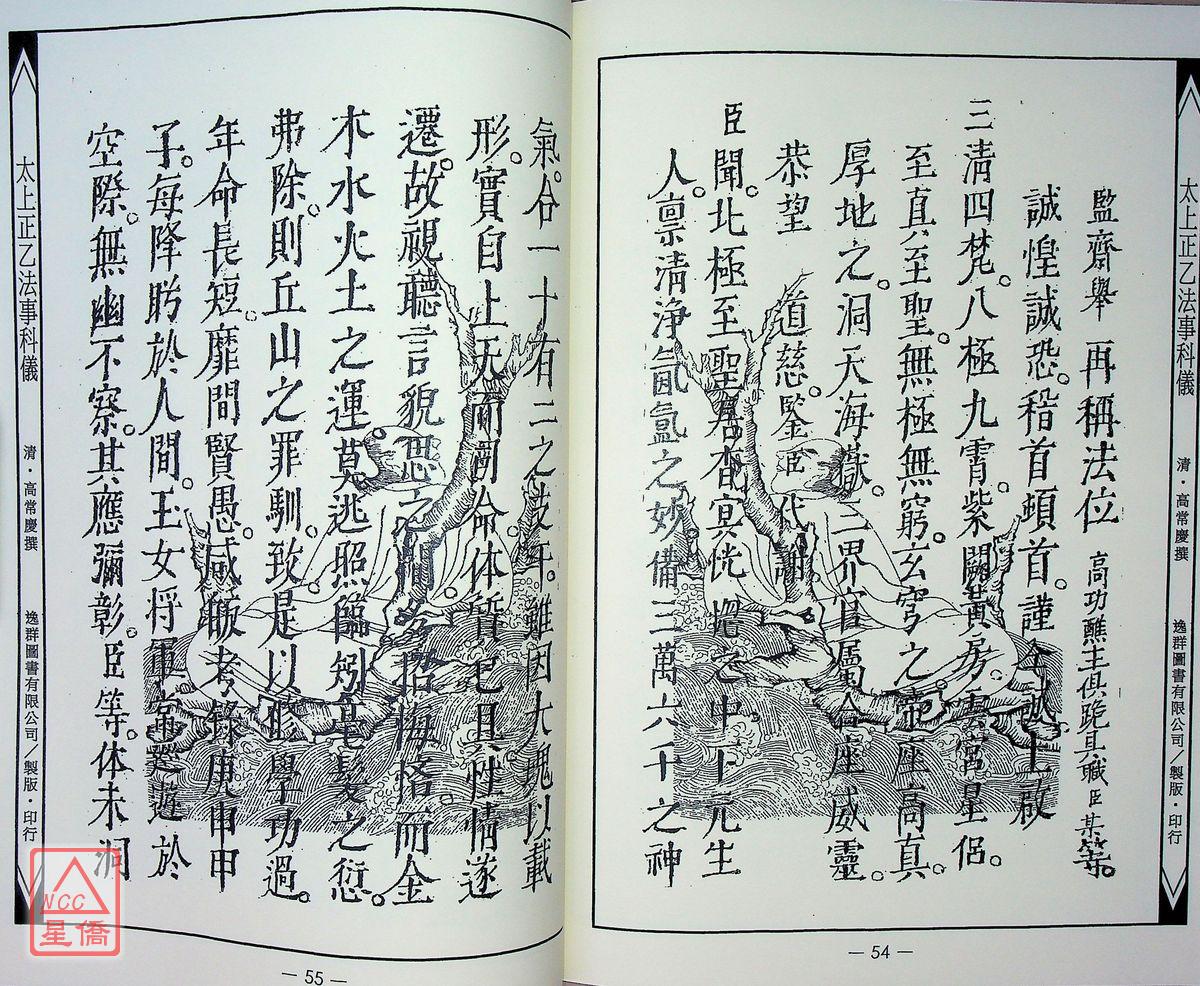 太上正乙法事科儀
清·高常慶撰
逸群圖書有限公司／製版·印行
監齋舉 再稱法位 高功醮主俱跪具職臣某等。
誠惶誠恐。稽首頓首。謹 誠上啟
三清四梵。八極九霄紫闕黃房。 宮星侶。
至真至聖。無極無窮。玄穹之 座高真。
厚地之洞天海嶽。三界官屬合座威靈。
恭望 道慈。鑒臣代謝。
臣聞。北極至聖。居杳冥恍惚之中。上元生
人。禀清淨氤氳之妙。備三萬六千之神
— 54 —
氣。合一十有二之 。雖因大塊以載
形。實自上天而 命。体質已具。性情遂
遷。故視聽言貌思之間。多招悔悋。而金
木水火土之運。莫逃照臨。 毫髮之愆
弗除。則丘山之罪馴致。是以修學功過。
年命長短。靡間賢愚。咸皈考錄。庚申甲
子。每降 於人間。玉女将軍。常巡遊於
空際。無幽不察。其應彌彰。臣等。体未洞
太上正乙法事科儀
清·高常慶撰
逸群圖書有限公司／製版·印行
— 55 —
NCC
星僑